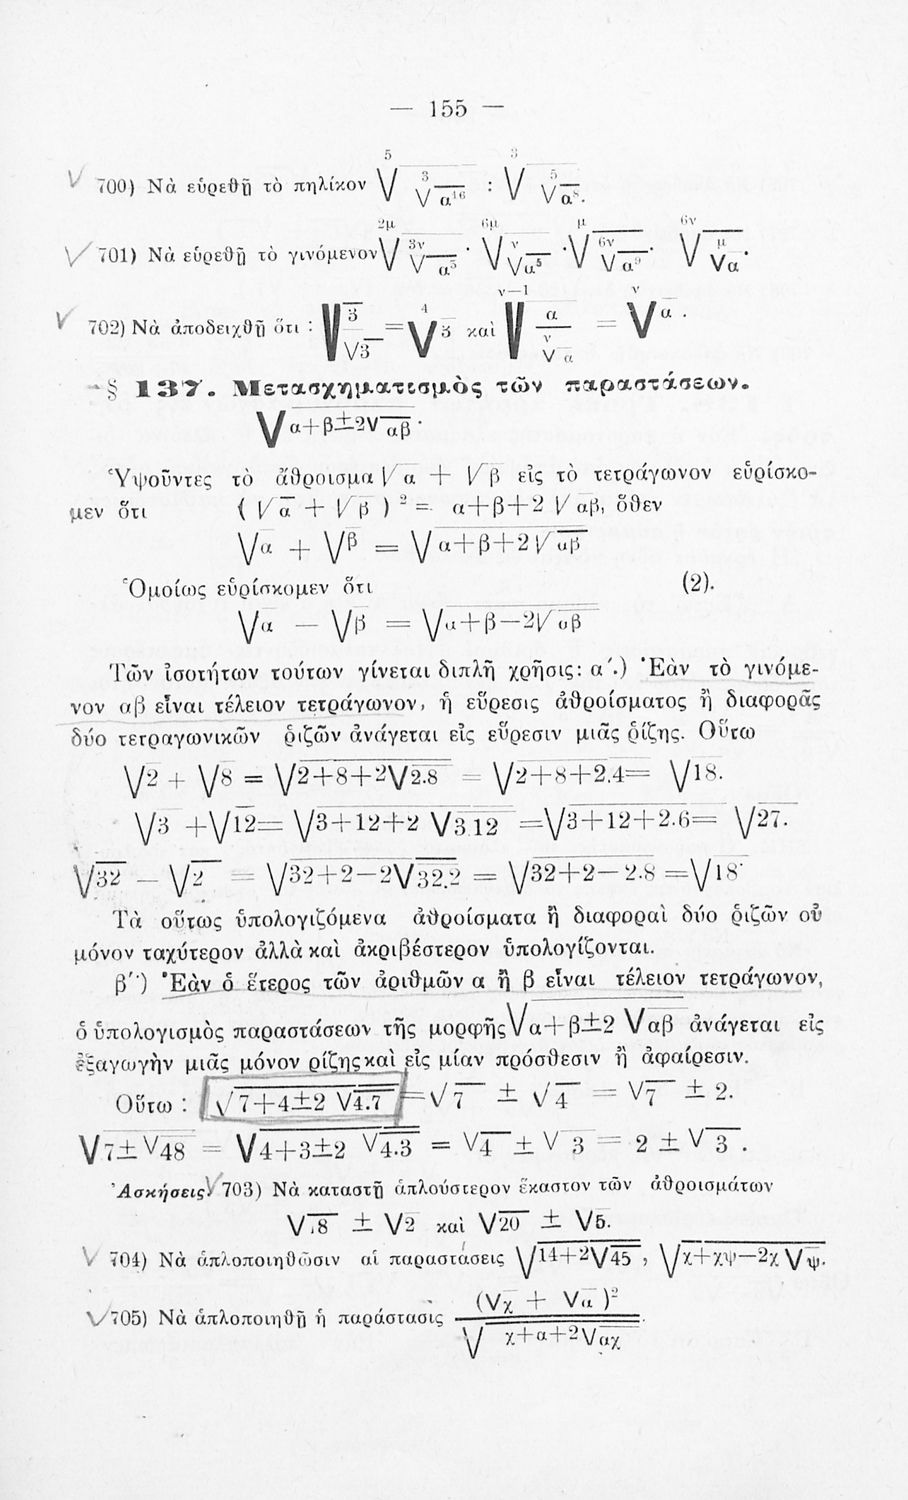 — 155 —
700) Νὰ εὑρεθῇ τὸ πηλίκον ⁵√(³√α¹⁶) : ³√(⁵√α⁸).
701) Νὰ εὑρεθῇ τὸ γινόμενον ²μ√(³ν√α⁵) · ⁶μ√(ν√α⁵) · μ√(⁶ν√α⁹) · ⁶ν√(μ√α)·
702) Νὰ ἀποδειχθῇ ὅτι : √(3/√3) = ⁴√3 καὶ ν—1√(α/ν√α) = ν√α .
§ 137. Μετασχηματισμὸς τῶν παραστάσεων.
√(α+β±2√αβ) ·
Ὑψοῦντες τὸ ἄθροισμα √α + √β εἰς τὸ τετράγωνον εὑρίσκο-
μεν ὅτι (√α + √β)² = α+β+2√αβ, ὅθεν
√α + √β = √(α+β+2√αβ)
Ὁμοίως εὑρίσκομεν ὅτι (2).
√α — √β = √(α+β—2√αβ)
Τῶν ἰσοτήτων τούτων γίνεται διπλῆ χρῆσις: α΄.) Ἐὰν τὸ γινόμε-
νον αβ εἶναι τέλειον τετράγωνον, ἡ εὕρεσις ἀθροίσματος ἢ διαφορᾶς
δύο τετραγωνικῶν ῥιζῶν ἀνάγεται εἰς εὕρεσιν μιᾶς ῥίζης. Οὕτω
√2 + √8 = √(2+8+2√2.8) = √(2+8+2.4) = √18.
√3 + √12 = √(3+12+2√3.12) = √(3+12+2.6) = √27.
√32 — √2 = √(32+2—2√32.2) = √(32+2—2.8) = √18·
Τὰ οὕτως ὑπολογιζόμενα ἀθροίσματα ἢ διαφοραὶ δύο ῥιζῶν οὐ
μόνον ταχύτερον ἀλλὰ καὶ ἀκριβέστερον ὑπολογίζονται.
β΄) Ἐὰν ὁ ἕτερος τῶν ἀριθμῶν α ἢ β εἶναι τέλειον τετράγωνον,
ὁ ὑπολογισμὸς παραστάσεων τῆς μορφῆς √(α+β±2√αβ) ἀνάγεται εἰς
ἐξαγωγὴν μιᾶς μόνον ρίζης καὶ εἰς μίαν πρόσθεσιν ἢ ἀφαίρεσιν.
Οὕτω : √(7+4±2√4.7) = √7 ± √4 = √7 ± 2.
√(7±√48) = √(4+3±2√4.3) = √4 ± √3 = 2 ± √3 .
Ἀσκήσεις. 703) Νὰ καταστῇ ἁπλούστερον ἕκαστον τῶν ἀθροισμάτων
√18 ± √2 καὶ √20 ± √5.
704) Νὰ ἁπλοποιηθῶσιν αἱ παραστάσεις √(14+2√45) , √(χ+χψ—2χ√ψ).
705) Νὰ ἁπλοποιηθῇ ἡ παράστασις (√χ + √α)² / √(χ+α+2√αχ) .